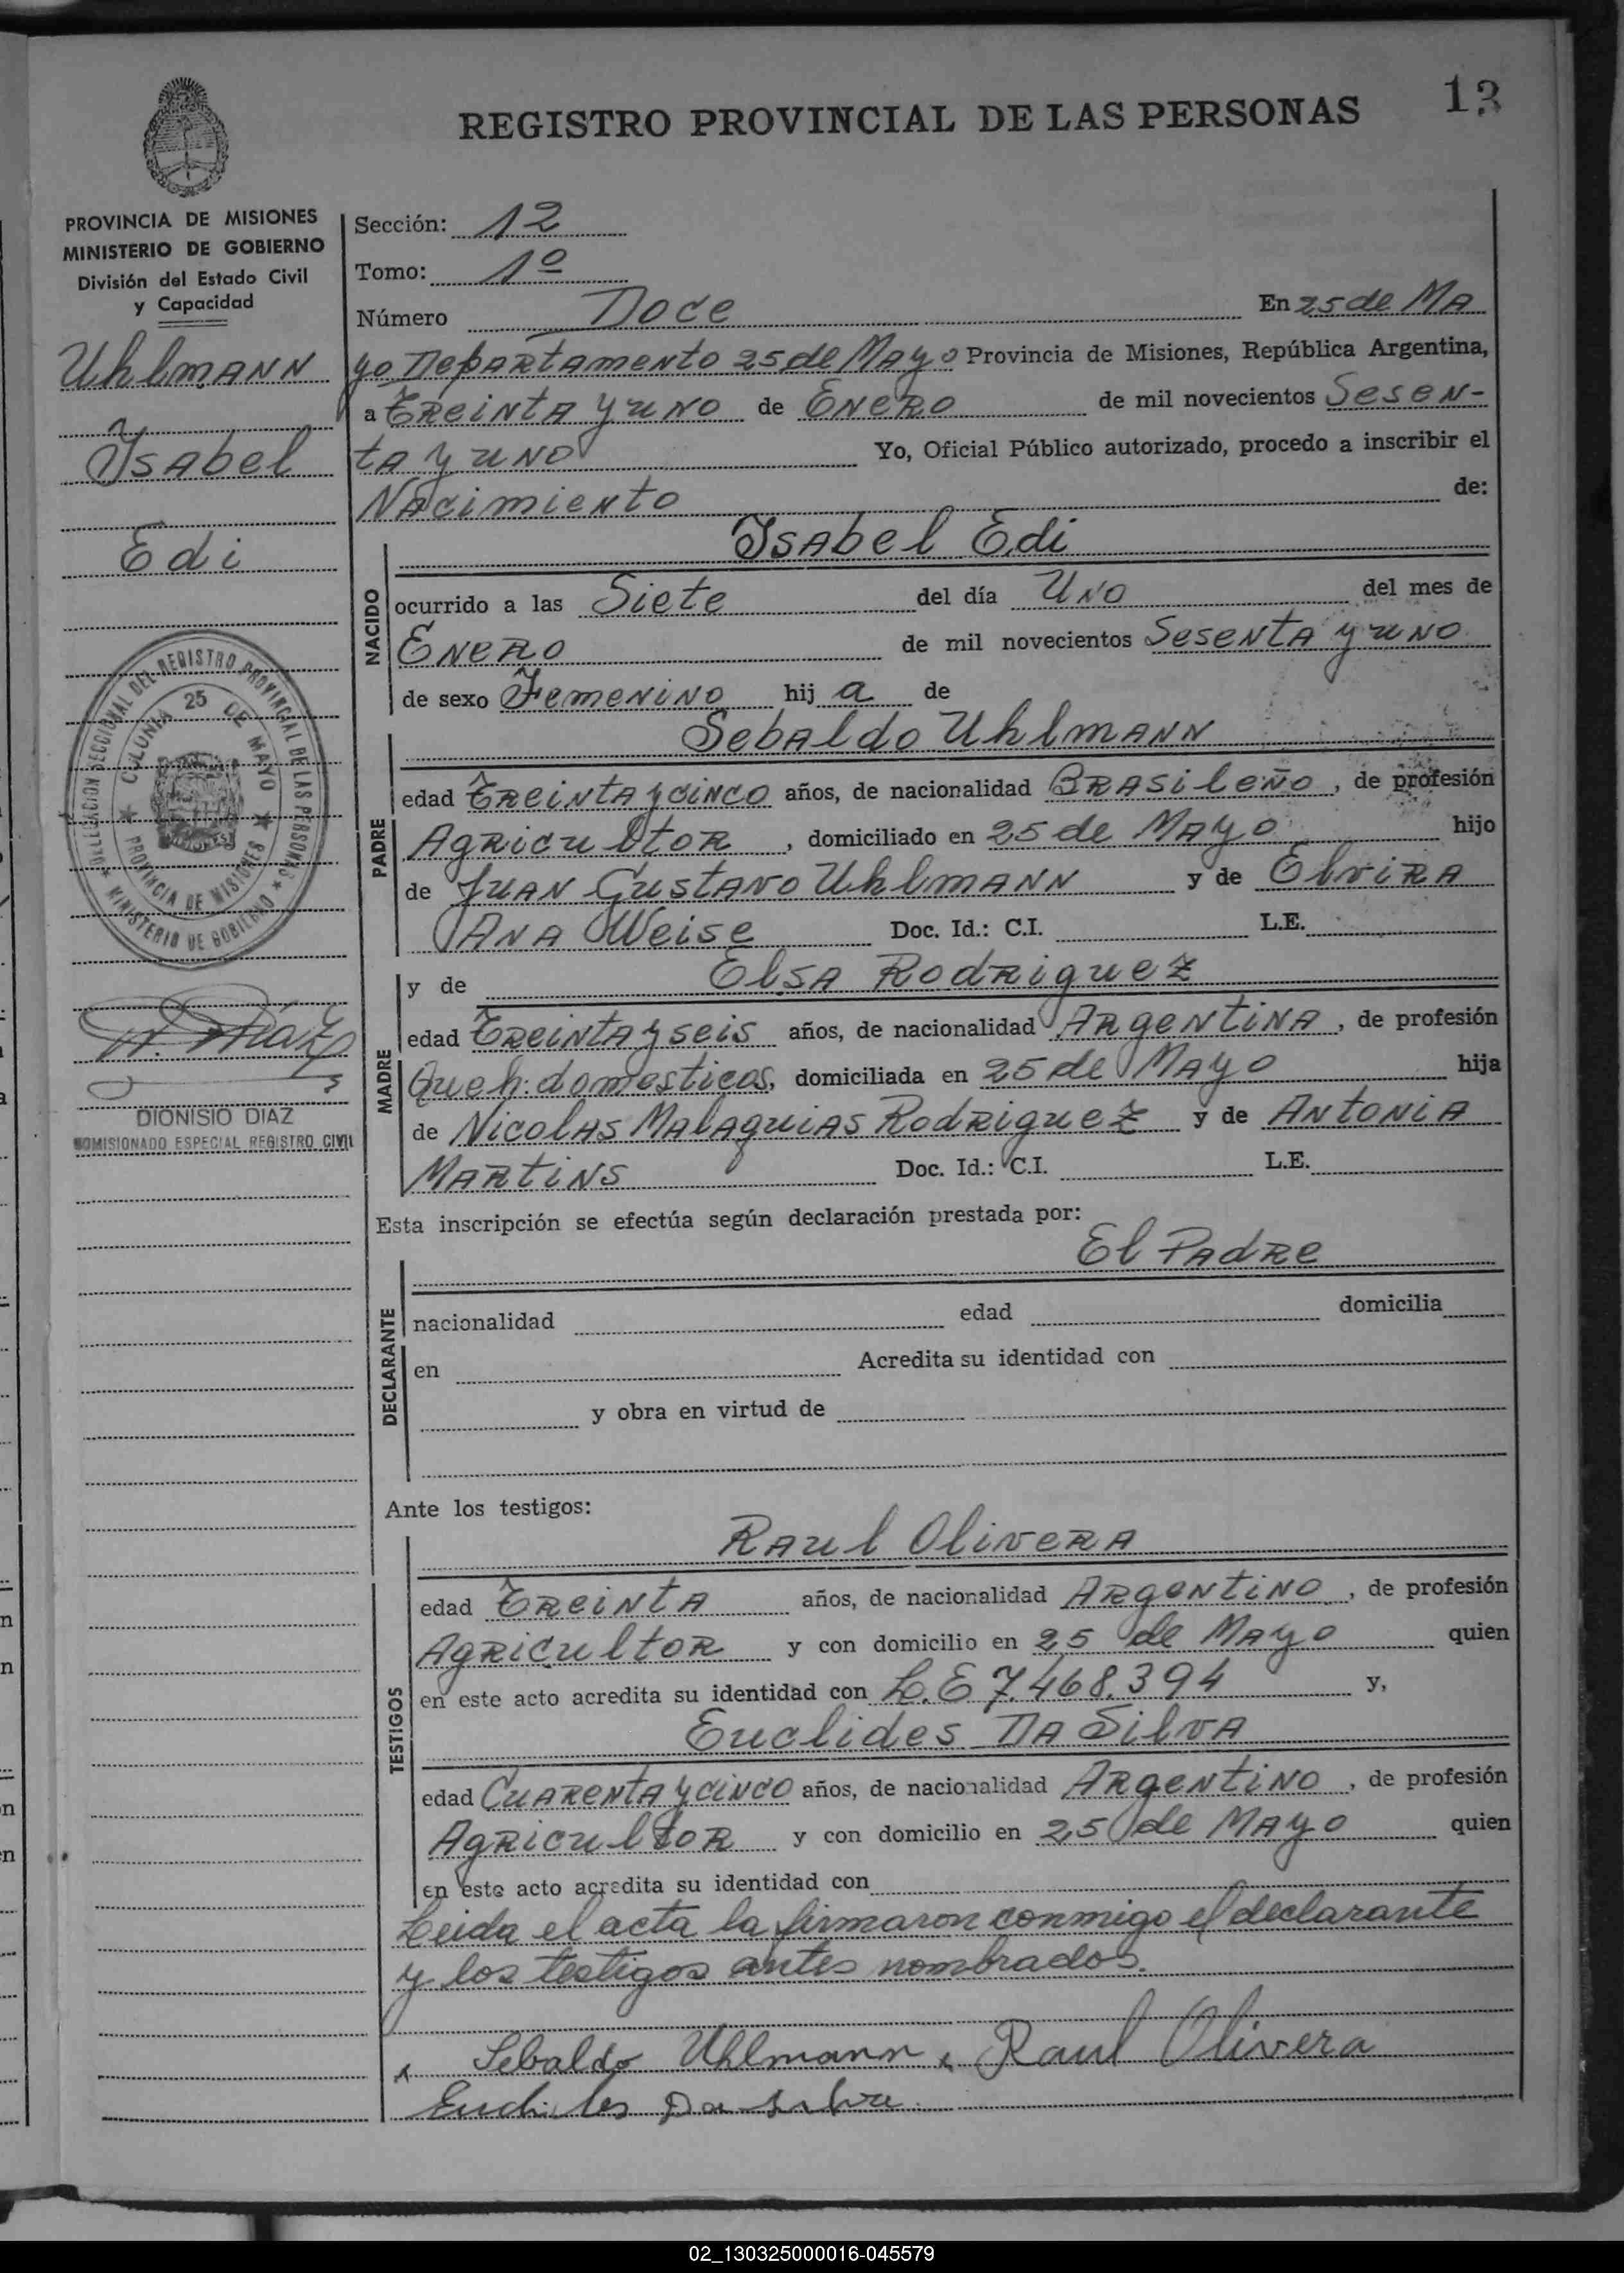 13
REGISTRO PROVINCIAL DE LAS PERSONAS
PROVINCIA DE MISIONES
MINISTERIO DE GOBIERNO
División del Estado Civil
y Capacidad
Uhlmann
Isabel
Edi
DELEGACION SECCIONAL DEL REGISTRO PROVINCIAL DE LAS PERSONAS
COLONIA 25 DE MAYO
PROVINCIA DE MISIONES
MINISTERIO DE GOBIERNO
D. Díaz
DIONISIO DIAZ
COMISIONADO ESPECIAL REGISTRO CIVIL
Sección: 12
Tomo: 1º
Número Doce En 25 de Ma
yo Departamento 25 de Mayo Provincia de Misiones, República Argentina,
a Treinta y uno de Enero de mil novecientos Sesen-
ta y uno Yo, Oficial Público autorizado, procedo a inscribir el
Nacimiento de:
Isabel Edi
NACIDO
ocurrido a las Siete del día Uno del mes de
Enero de mil novecientos Sesenta y uno
de sexo Femenino hij a de
Sebaldo Uhlmann
PADRE
edad Treinta y cinco años, de nacionalidad Brasileño, de profesión
Agricultor, domiciliado en 25 de Mayo hijo
de Juan Gustavo Uhlmann y de Elvira
Ana Weise Doc. Id.: C.I. L.E.
y de Elsa Rodriguez
MADRE
edad Treinta y seis años, de nacionalidad Argentina, de profesión
Queh: domesticos, domiciliada en 25 de Mayo hija
de Nicolas Malaquias Rodriguez y de Antonia
Martins Doc. Id.: C.I. L.E.
Esta inscripción se efectúa según declaración prestada por:
El Padre
DECLARANTE
nacionalidad edad domicilia
en Acredita su identidad con
y obra en virtud de
Ante los testigos:
Raul Olivera
TESTIGOS
edad Treinta años, de nacionalidad Argentino, de profesión
Agricultor y con domicilio en 25 de Mayo quien
en este acto acredita su identidad con L.E 7.468.394 y,
Euclides Da Silva
edad Cuarenta y cinco años, de nacionalidad Argentino, de profesión
Agricultor y con domicilio en 25 de Mayo quien
en este acto acredita su identidad con
Leida el acta la firmaron conmigo el declarante
y los testigos antes nombrados.
x Sebaldo Uhlmann x Raul Olivera
Euclides Da Silva
02_130325000016-045579